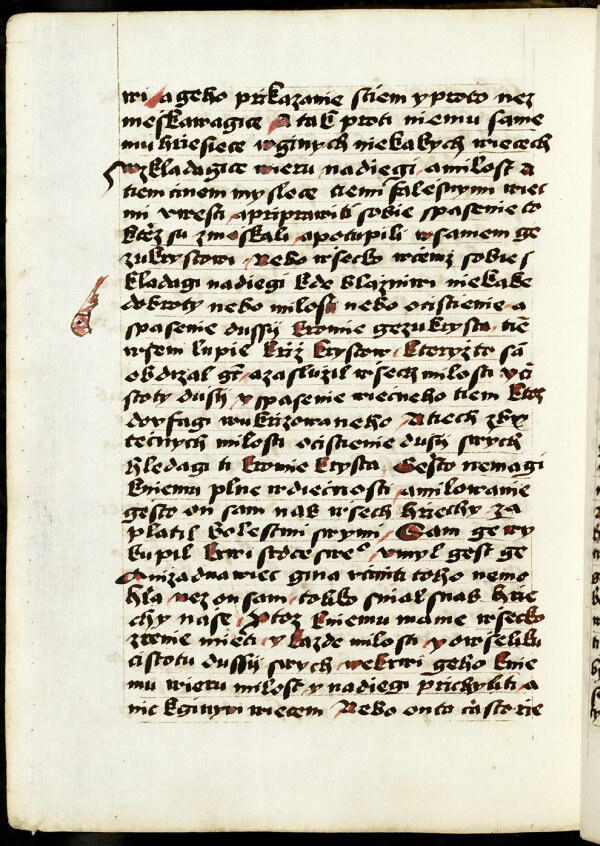 wi a geho prikazanie sciem y proto nez
meskawagice A tak proti niemu same
mu hriesiece w ginych niekakych wiecech
wzkladagice wieru nadiegi a milost A
tiem cinem myslece tiemi falesnymi wiec
mi vwesti a priprawiti sobie spasenie to
ktoz su zmeskali a potupili w samem ge
zukrystowi Nebo wsecko w cemz sobie s
kladagi nadiegi kde blazniwi niekake
dobroty nebo milosti nebo ocistienie a
spasenie dussij kromie gezukrysta tie
wsem lupie krziz krystow ktoryzto sa
obdrzal gt a zasluzil wsech milosti y ci
stoty dusij y spasenie wiecneho tiem ktoz
dovfagi w vkrizowaneho A tiech zby
tecnych milosti ocistienie dusij swych
hledagi ti kromie krysta Gesto nemagi
k niemu plne wdiecnosti a milowanie
gesto on sam nas wsech hriechy za
platil bolestmi swymi Sam ge wy
kupil krwi srdce sweo vmyl gest ge
A nizadna wiec gina vciniti toho nemo
hla nez on sam toliko snial s nas hrie
chy nase Protoz k niemu mame wsecko
zrenie mieti y kazde milosti y owseliku
cistotu dussij swych we krwi geho k nie
mu wieru milost y nadiegi prichyliti a
nic k ginym wiecem Nebo on to ca storie